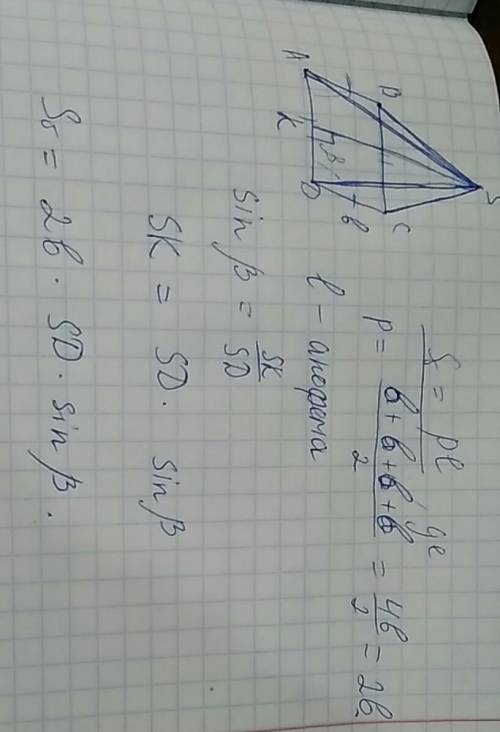 S
B
A
K
β
D
b
C
S = pl, де
p = b + b + b + b / 2 = 4b / 2 = 2b
l – апофема
sin β = SK / SD
SK = SD · sin β
Sб = 2b · SD · sin β .